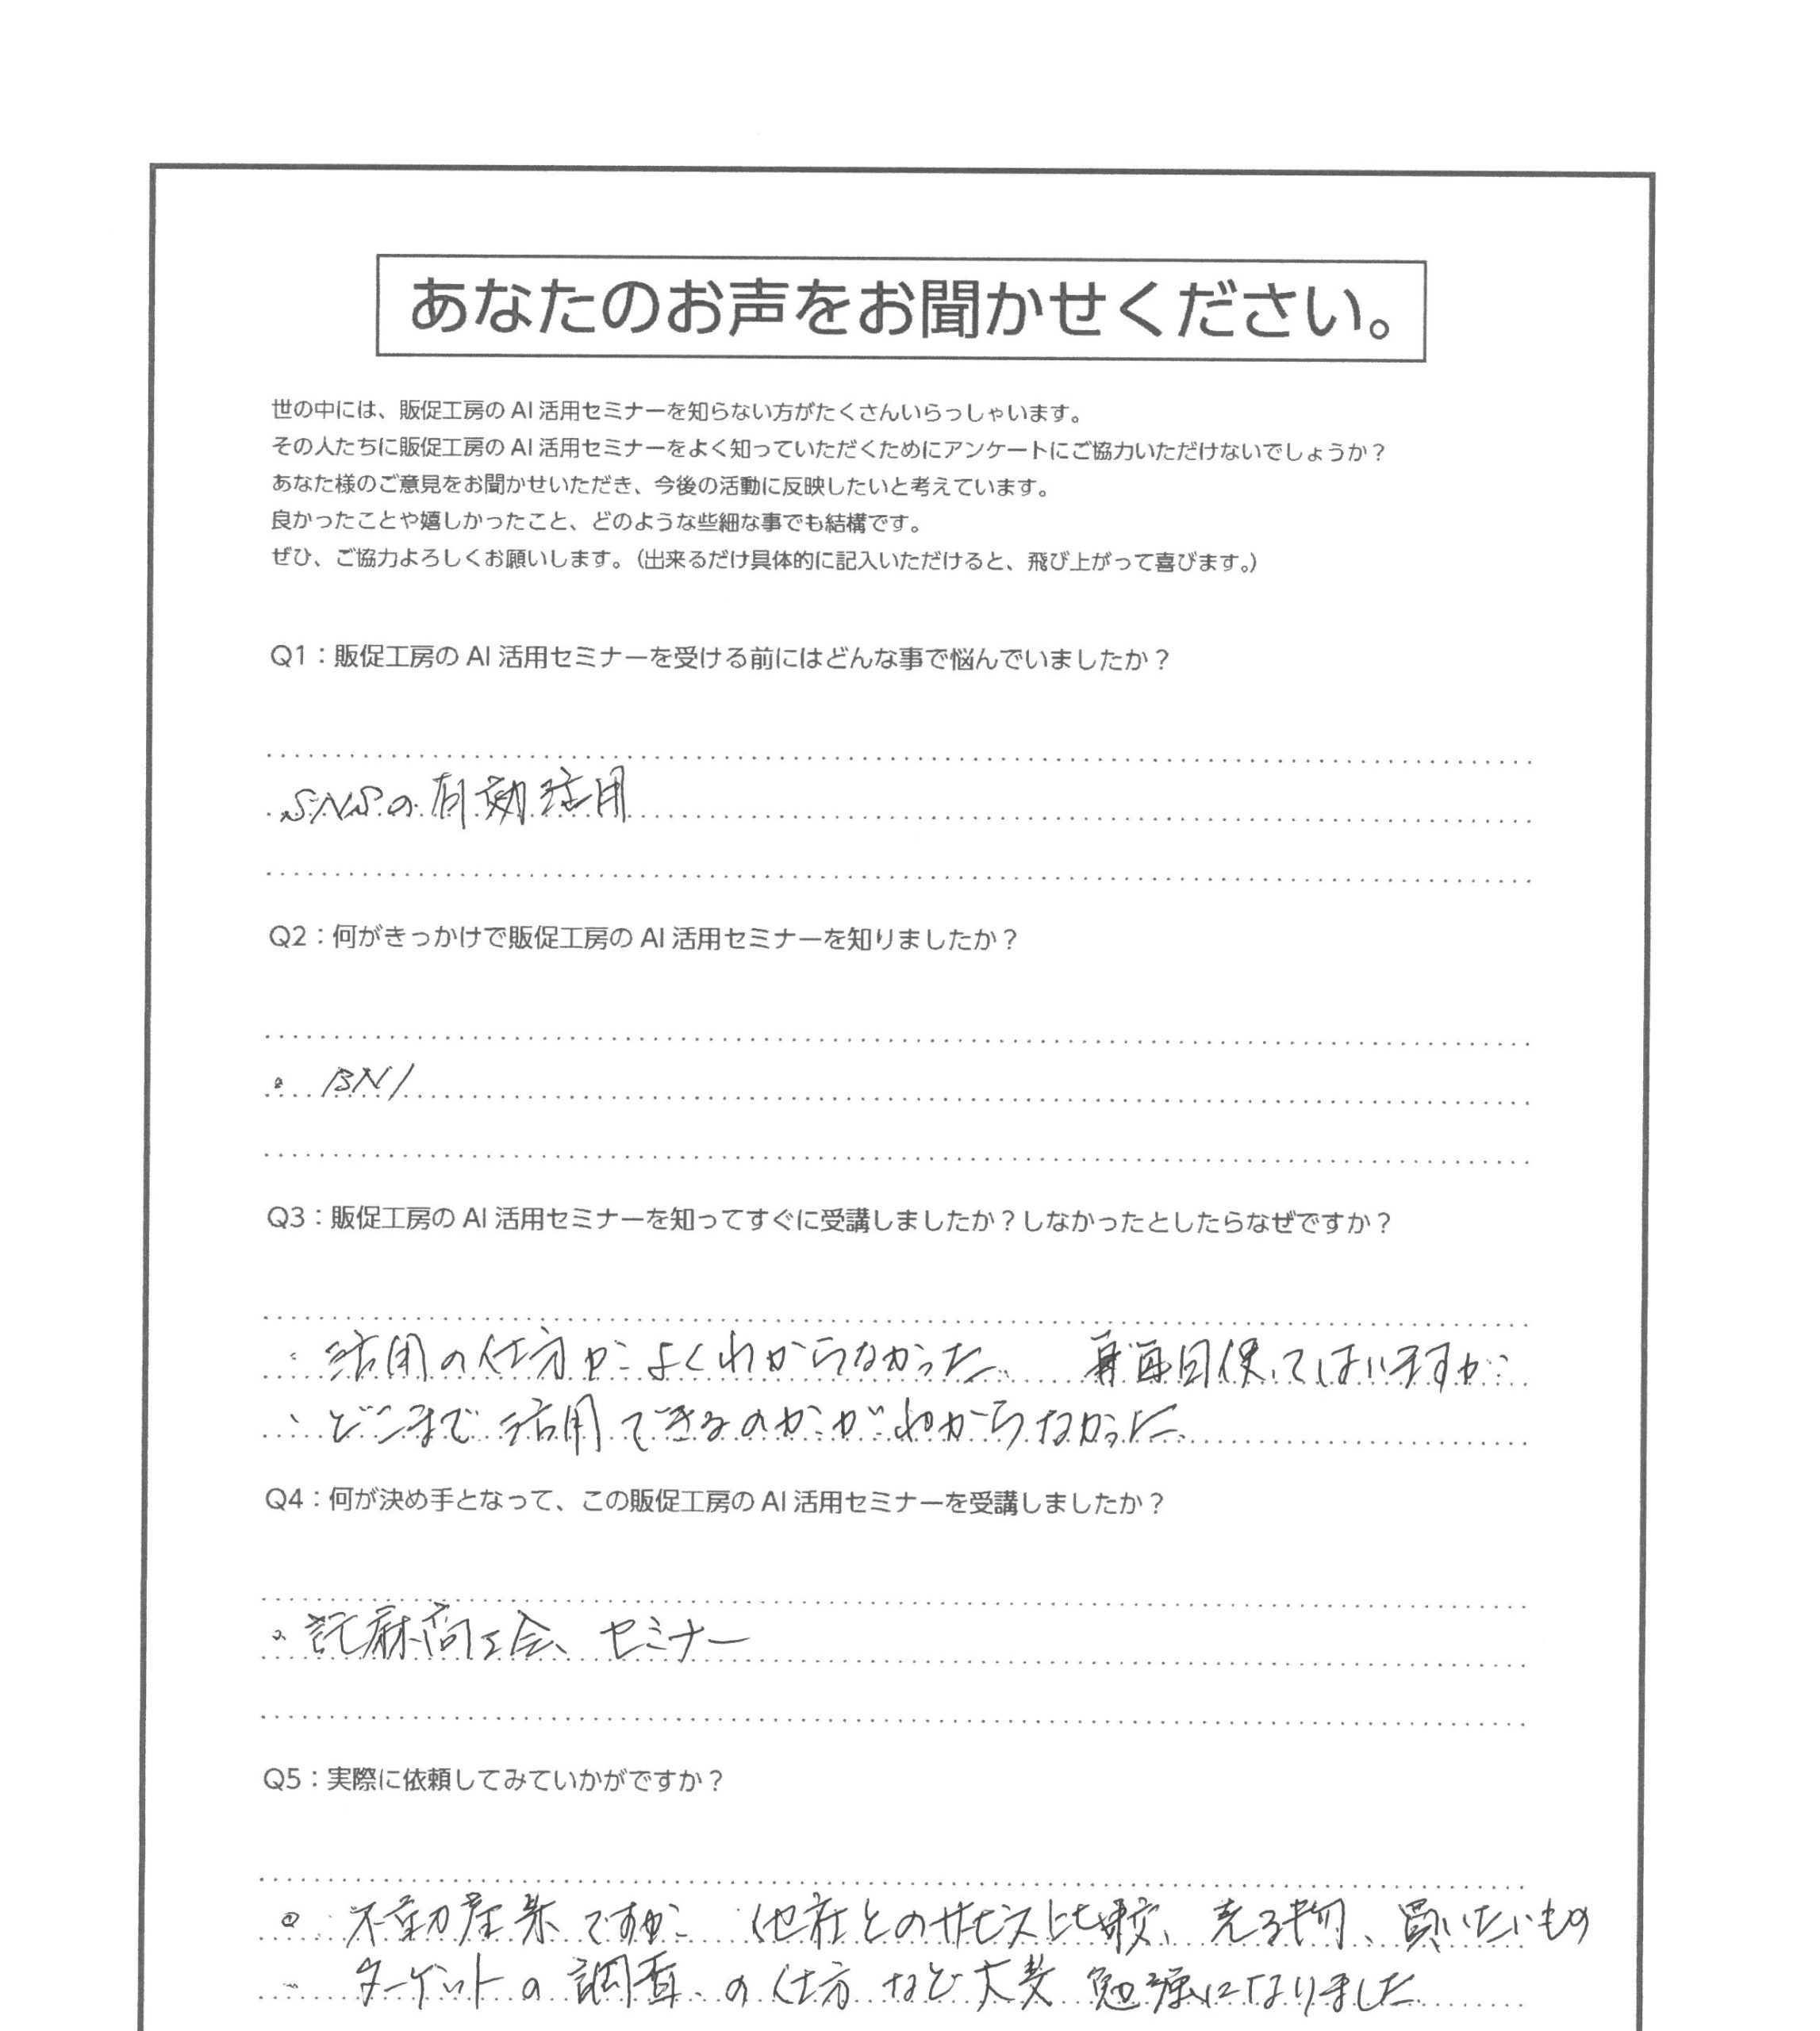 あなたのお声をお聞かせください。
世の中には、販促工房の AI 活用セミナーを知らない方がたくさんいらっしゃいます。
その人たちに販促工房の AI 活用セミナーをよく知っていただくためにアンケートにご協力いただけないでしょうか？
あなた様のご意見をお聞かせいただき、今後の活動に反映したいと考えています。
良かったことや嬉しかったこと、どのような些細な事でも結構です。
ぜひ、ご協力よろしくお願いします。（出来るだけ具体的に記入いただけると、飛び上がって喜びます。）
Q1：販促工房の AI 活用セミナーを受ける前にはどんな事で悩んでいましたか？
SNSの有効活用
Q2：何がきっかけで販促工房の AI 活用セミナーを知りましたか？
。BNI
Q3：販促工房の AI 活用セミナーを知ってすぐに受講しましたか？しなかったとしたらなぜですか？
活用の仕方がよくわからなかった、毎日使ってはいますが
どこまで活用できるのかがわからなかった。
Q4：何が決め手となって、この販促工房の AI 活用セミナーを受講しましたか？
。託麻商工会、セミナー
Q5：実際に依頼してみていかがですか？
。不動産業ですが 他社とのサービス比較、売る物、買いたいもの
ターゲットの調査、の仕方など大変勉強になりました